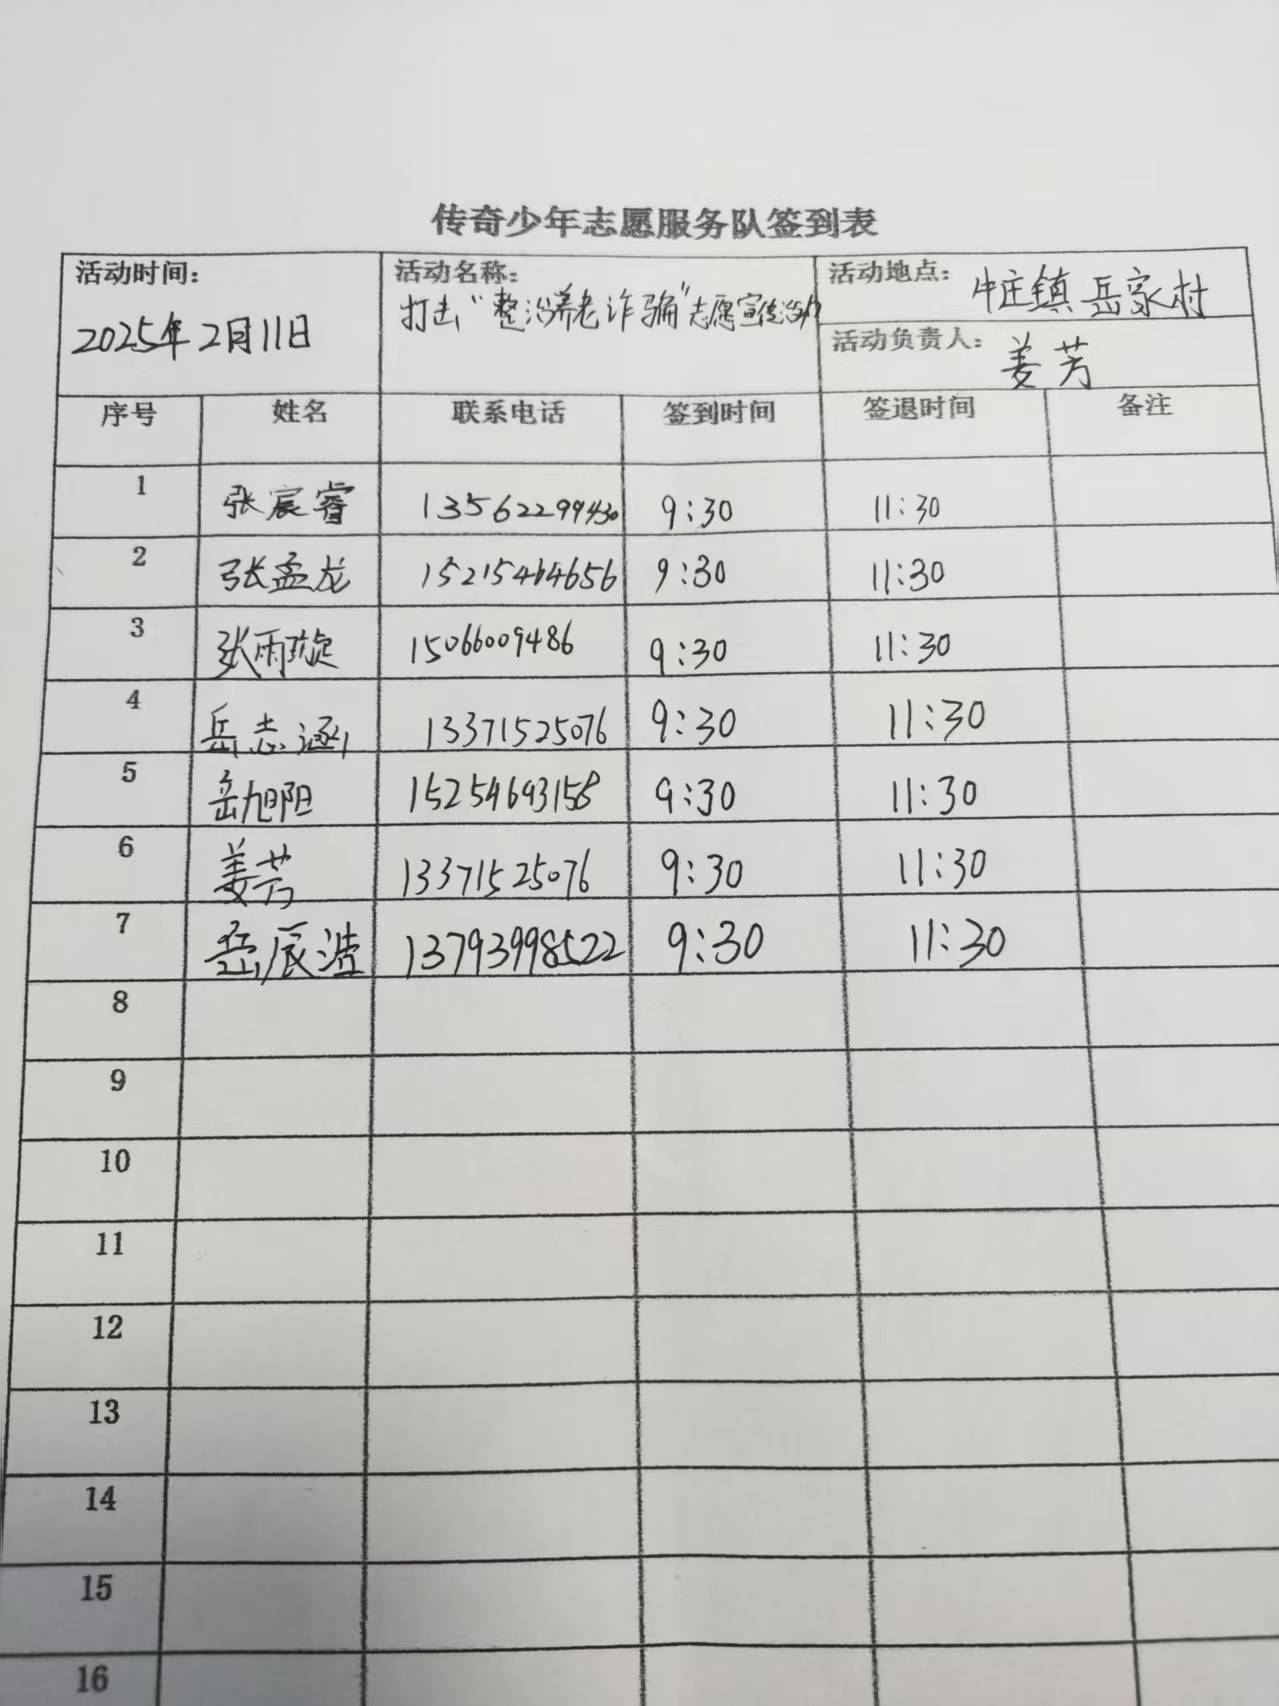 传奇少年志愿服务队签到表
活动时间： 活动名称： 活动地点： 牛庄镇岳家村
2025年2月11日 打击“整治养老诈骗”志愿宣传活动
活动负责人： 姜芳
序号 姓名 联系电话 签到时间 签退时间 备注
1 张宸睿 13562299430 9:30 11:30
2 张孟龙 15215464656 9:30 11:30
3 张雨璇 15066009486 9:30 11:30
4 岳志涵 13371525076 9:30 11:30
5 岳旭阳 15254693158 9:30 11:30
6 姜芳 13371525076 9:30 11:30
7 岳辰 13793998522 9:30 11:30
8
9
10
11
12
13
14
15
16